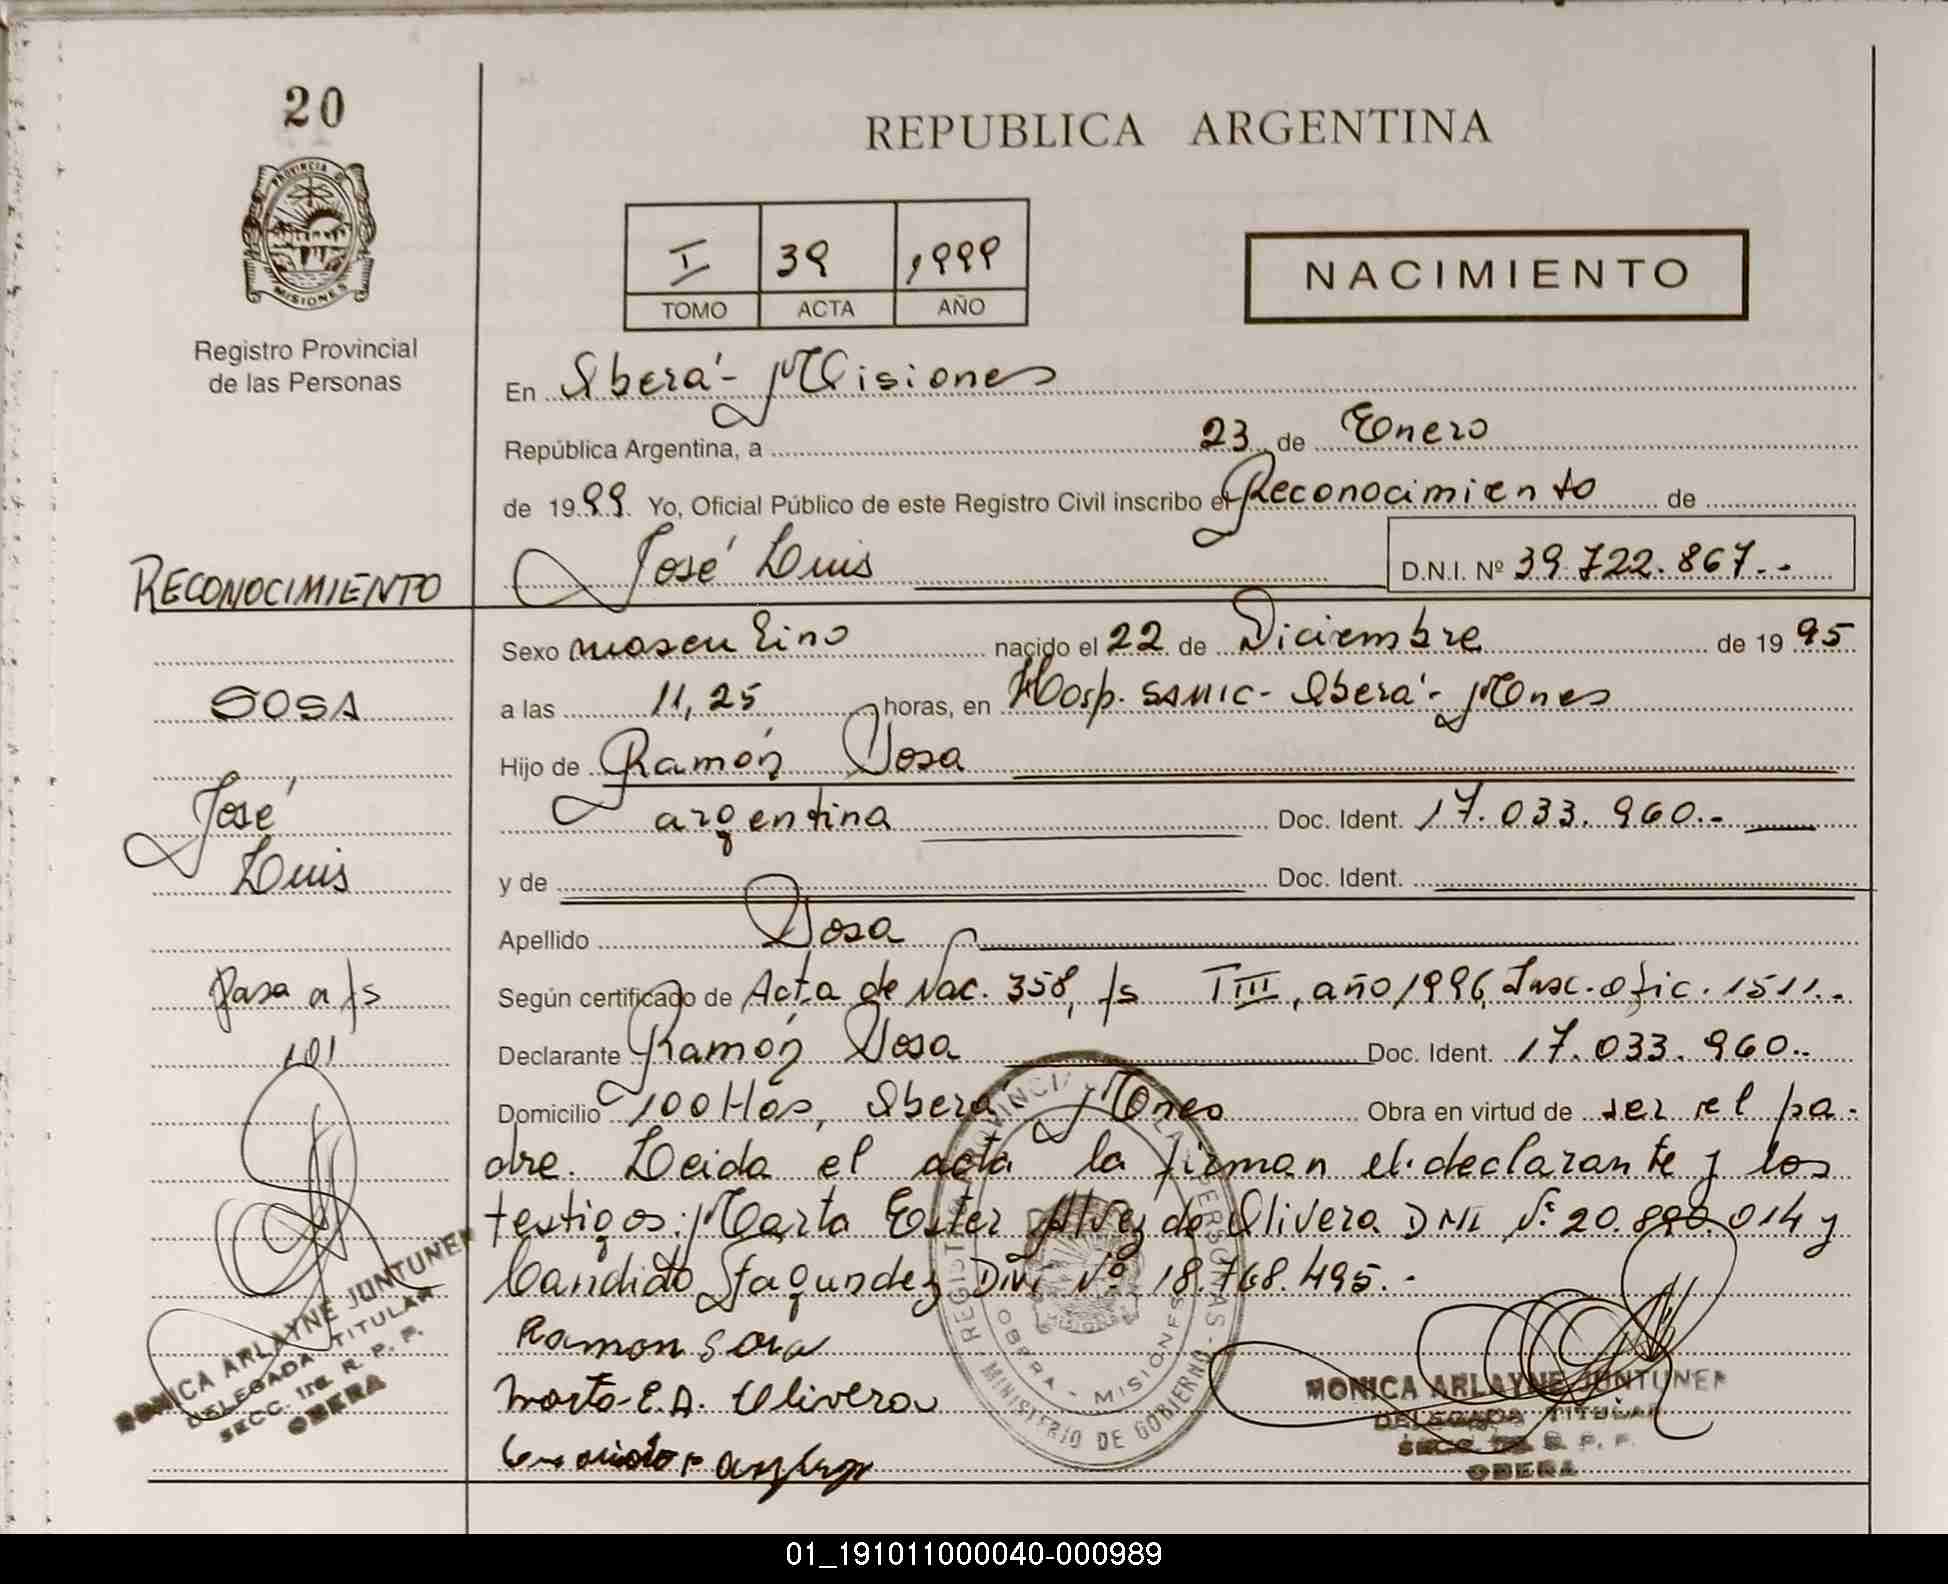 20
PROVINCIA D
MISIONES
Registro Provincial
de las Personas
REPUBLICA ARGENTINA
I 39 1999
TOMO ACTA AÑO
NACIMIENTO
En Oberá - Misiones
República Argentina, a 23 de Enero
de 1999 Yo, Oficial Público de este Registro Civil inscribo el Reconocimiento de
José Luis D.N.I. Nº 39.722.867.-
RECONOCIMIENTO
SOSA
José
Luis
Pasa a fs
101
MONICA ARLAYNE JUNTUNEN
DELEGADA TITULAR
SECC. 1ra. R. P. P.
OBERA
Sexo masculino nacido el 22 de Diciembre de 1995
a las 11,25 horas, en Hosp. SAMIC - Oberá - Mnes
Hijo de Ramón Sosa
argentina Doc. Ident. 17.033.960.-
y de Doc. Ident.
Apellido Sosa
Según certificado de Acta de Nac. 358, fs TIII, año 1996, Insc. ofic. 1511.-
Declarante Ramón Sosa Doc. Ident. 17.033.960.-
Domicilio 100 Has, Oberá Mnes Obra en virtud de ser el pa-
dre. Leida el acta la firman el declarante y los
testigos: Marta Ester Alvez de Olivera DNI Nº 20.890.014 y
Candido Fagundez DNI Nº 18.768.495.-
Ramon Sosa
Marta E.A. Olivera
MONICA ARLAYNE JUNTUNEN
DELEGADA TITULAR
SECC. 1ra. R. P. P.
OBERA
PERSONAS - MINISTERIO DE GOBIERNO
OBERA - MISIONES
01_191011000040-000989